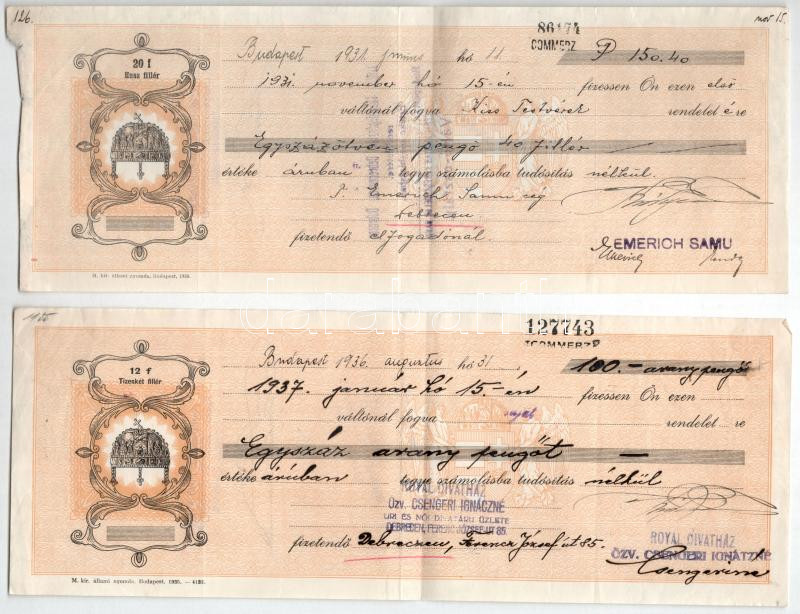 126.
nov 15.
86174
COMMERZ
20 f
Husz fillér
Budapest 1931. junius hó 11. P 150.40
1931. november hó 15-én fizessen Ön ezen első
váltónál fogva Kiss Testvérek rendelet é re
Egyszázötven pengő 40 fillér
értéke áruban tegye számolásba tudósítás nélkül.
Emerich Samu cég
Debrecen
fizetendő elfogadónál.
EMERICH SAMU
M. kir. állami nyomda, Budapest, 1930.
127743
COMMERZ
12 f
Tizenkét fillér
Budapest 1936. augusztus hó 31, 100.- arany pengőt
1937. január hó 15.-én fizessen Ön ezen
váltónál fogva saját rendelet re
Egyszáz arany pengőt —
értéke áruban tegye számolásba tudósítás nélkül
ROYAL DIVATHÁZ
ÖZV. CSENGERI IGNÁCZNÉ
URI ÉS NŐI DIVATÁRU ÜZLETE
DEBRECEN, FERENC JÓZSEF ÚT 85
fizetendő Debreczen, Ferencz József út 85.
ROYAL DIVATHÁZ
ÖZV. CSENGERI IGNÁTZNÉ
Csengeriné
M. kir. állami nyomda, Budapest, 1935. — 4123.